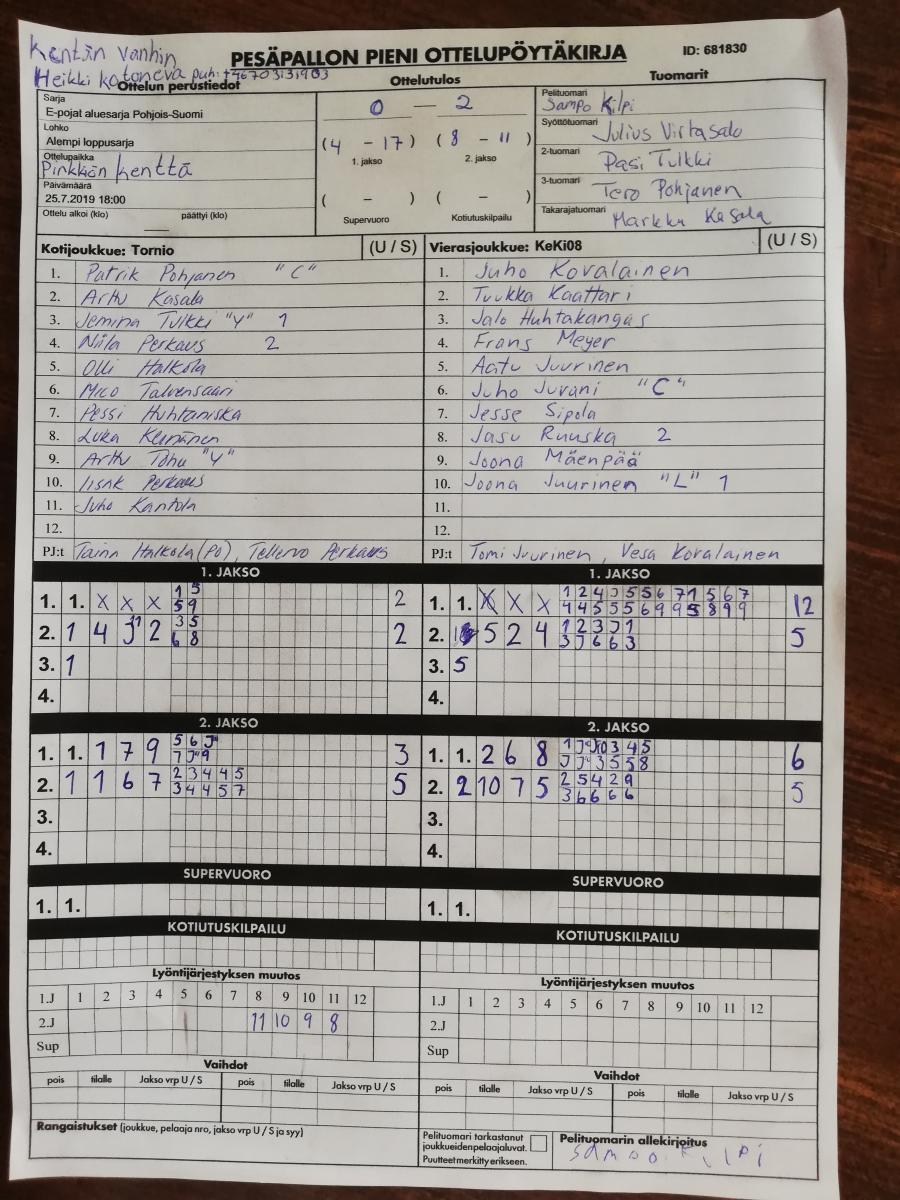 Kentän vanhin
PESÄPALLON PIENI OTTELUPÖYTÄKIRJA
ID: 681830
Heikki
Ottelun perustiedot
Ottelutulos
Tuomarit
Sarja
E-pojat aluesarja Pohjois-Suomi
Lohko
Alempi loppusarja
Ottelupaikka
Pirkkiön kenttä
Päivämäärä
25.7.2019 18:00
Ottelu alkoi (klo) päättyi (klo)
0 — 2
(4 - 17) (8 - 11)
1. jakso 2. jakso
( - ) ( - )
Supervuoro Kotiutuskilpailu
Pelituomari
Sampo Kilpi
Syöttötuomari
Julius Virtasalo
2-tuomari
Pasi Tulkki
3-tuomari
Tero Pohjanen
Takarajatuomari
Markku Kasala
Kotijoukkue: Tornio (U / S)
1. Patrik Pohjanen "C"
2. Arttu Kasala
3. Jemina Tulkki "Y" 1
4. Niila Perkaus 2
5. Olli Halkola
6. Mico Talvensaari
7. Pessi Huhtaniska
8. Luka Keinänen
9. Arttu "Y"
10. Iisak Perkaus
11. Juho Kantola
12.
PJ:t Taina Halkola (PO), Tellervo Perkaus
Vierasjoukkue: KeKi08 (U / S)
1. Juho Kovalainen
2. Tuukka Kaattari
3. Jalo Huhtakangas
4. Frans Meyer
5. Aatu Juurinen
6. Juho Juvani "C"
7. Jesse Sipola
8. Jasu Ruuska 2
9. Joona Mäenpää
10. Joona Juurinen "L" 1
11.
12.
PJ:t Tomi Juurinen, Vesa Kovalainen
1. JAKSO
1. 1. X X X 1 5 2
5 9
2. 1 4 2 3 5 2
6 8
3. 1
4.
1. JAKSO
1. 1. X X X 12
2. 5 2 4 1 2 3 J 1 5
3 J 6 6 3
3. 5
4.
2. JAKSO
1. 1. 1 7 9 5 6 3
2. 1 1 6 7 2 3 4 4 5 5
3 4 4 5 7
3.
4.
2. JAKSO
1. 1. 2 6 8 6
2. 2 10 7 5 2 5 4 2 9 5
3 6 6 6 6
3.
4.
SUPERVUORO
1. 1.
SUPERVUORO
1. 1.
KOTIUTUSKILPAILU
KOTIUTUSKILPAILU
Lyöntijärjestyksen muutos
1.J 1 2 3 4 5 6 7 8 9 10 11 12
2.J 11 10 9 8
Sup
Lyöntijärjestyksen muutos
1.J 1 2 3 4 5 6 7 8 9 10 11 12
2.J
Sup
Vaihdot
pois tilalle Jakso vrp U / S pois tilalle Jakso vrp U / S
Vaihdot
pois tilalle Jakso vrp U / S pois tilalle Jakso vrp U / S
Rangaistukset (joukkue, pelaaja nro, jakso vrp U / S ja syy)
Pelituomari tarkastanut
joukkueiden pelaajaluvat.
Puutteet merkitty erikseen.
Pelituomarin allekirjoitus